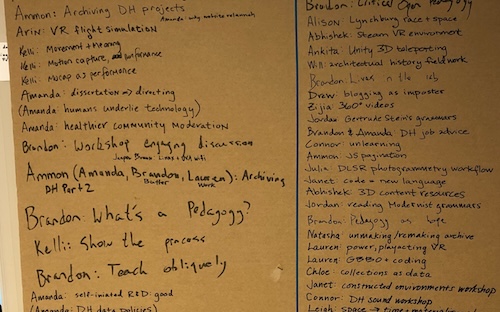 Ammon: Archiving DH projects
Amanda: why website relaunch
Arin: VR flight simulation
Kelli: Movement + Meaning
Kelli: Motion capture, and performance
Kelli: Mocap as performance
Amanda: dissertation → directing
(Amanda: humans underlie technology)
Amanda: healthier community moderation
Brandon: Workshop engaging discussion
Ammon (Amanda, Brandon, Lauren): Archiving
DH Part 2
Work
Brandon: What's a Pedagogy?
Kelli: Show the process
Brandon: Teach obliquely
Amanda: self-initiated R&D: good
(Amanda: DH data policies)
Brandon: Critical Open Pedagogy
Alison: Lynchburg race + space
Abhishek: Steam VR environment
Ankita: Unity 3D teleporting
Will: architectural history fieldwork
Brandon: Lives in the lab
Drew: blogging as impostor
Zijia: 360° videos
Jordan: Gertrude Stein's grammars
Brandon & Amanda: DH job advice
Connor: unlearning
Ammon: JS pagination
Julia: DLSR photogrammetry workflow
Janet: code = new language
Abhishek: 3D content resources
Jordan: reading Modernist grammars
Brandon: Pedagogy as hope
Natasha: unmaking/remaking archive
Lauren: power, playacting VR
Lauren: GBBO + coding
Chloe: collections as data
Janet: constructed environments workshop
Connor: DH sound workshop
Leigh: space → time +